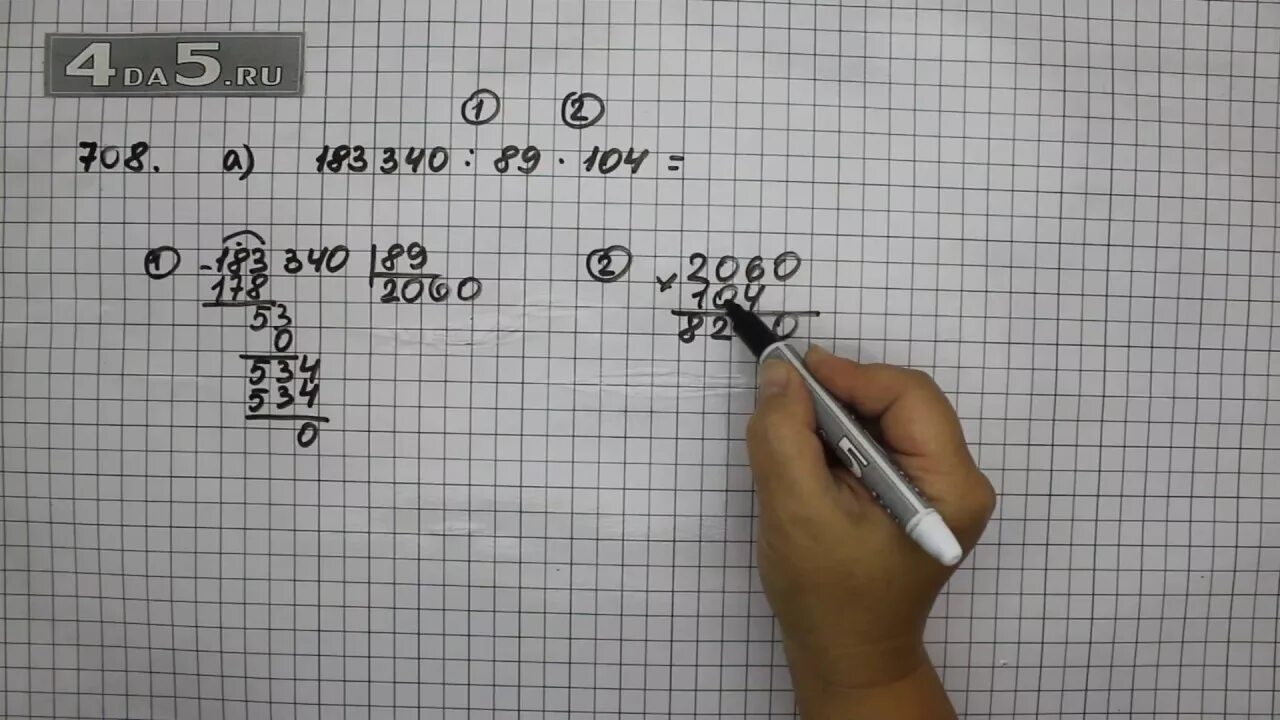 4DA5.RU
① ②
708. а) 183 340 : 89 · 104 =
① - 183 340 | 89
178 2060
53
0
534
534
0
② 2060
× 104
82 0
5